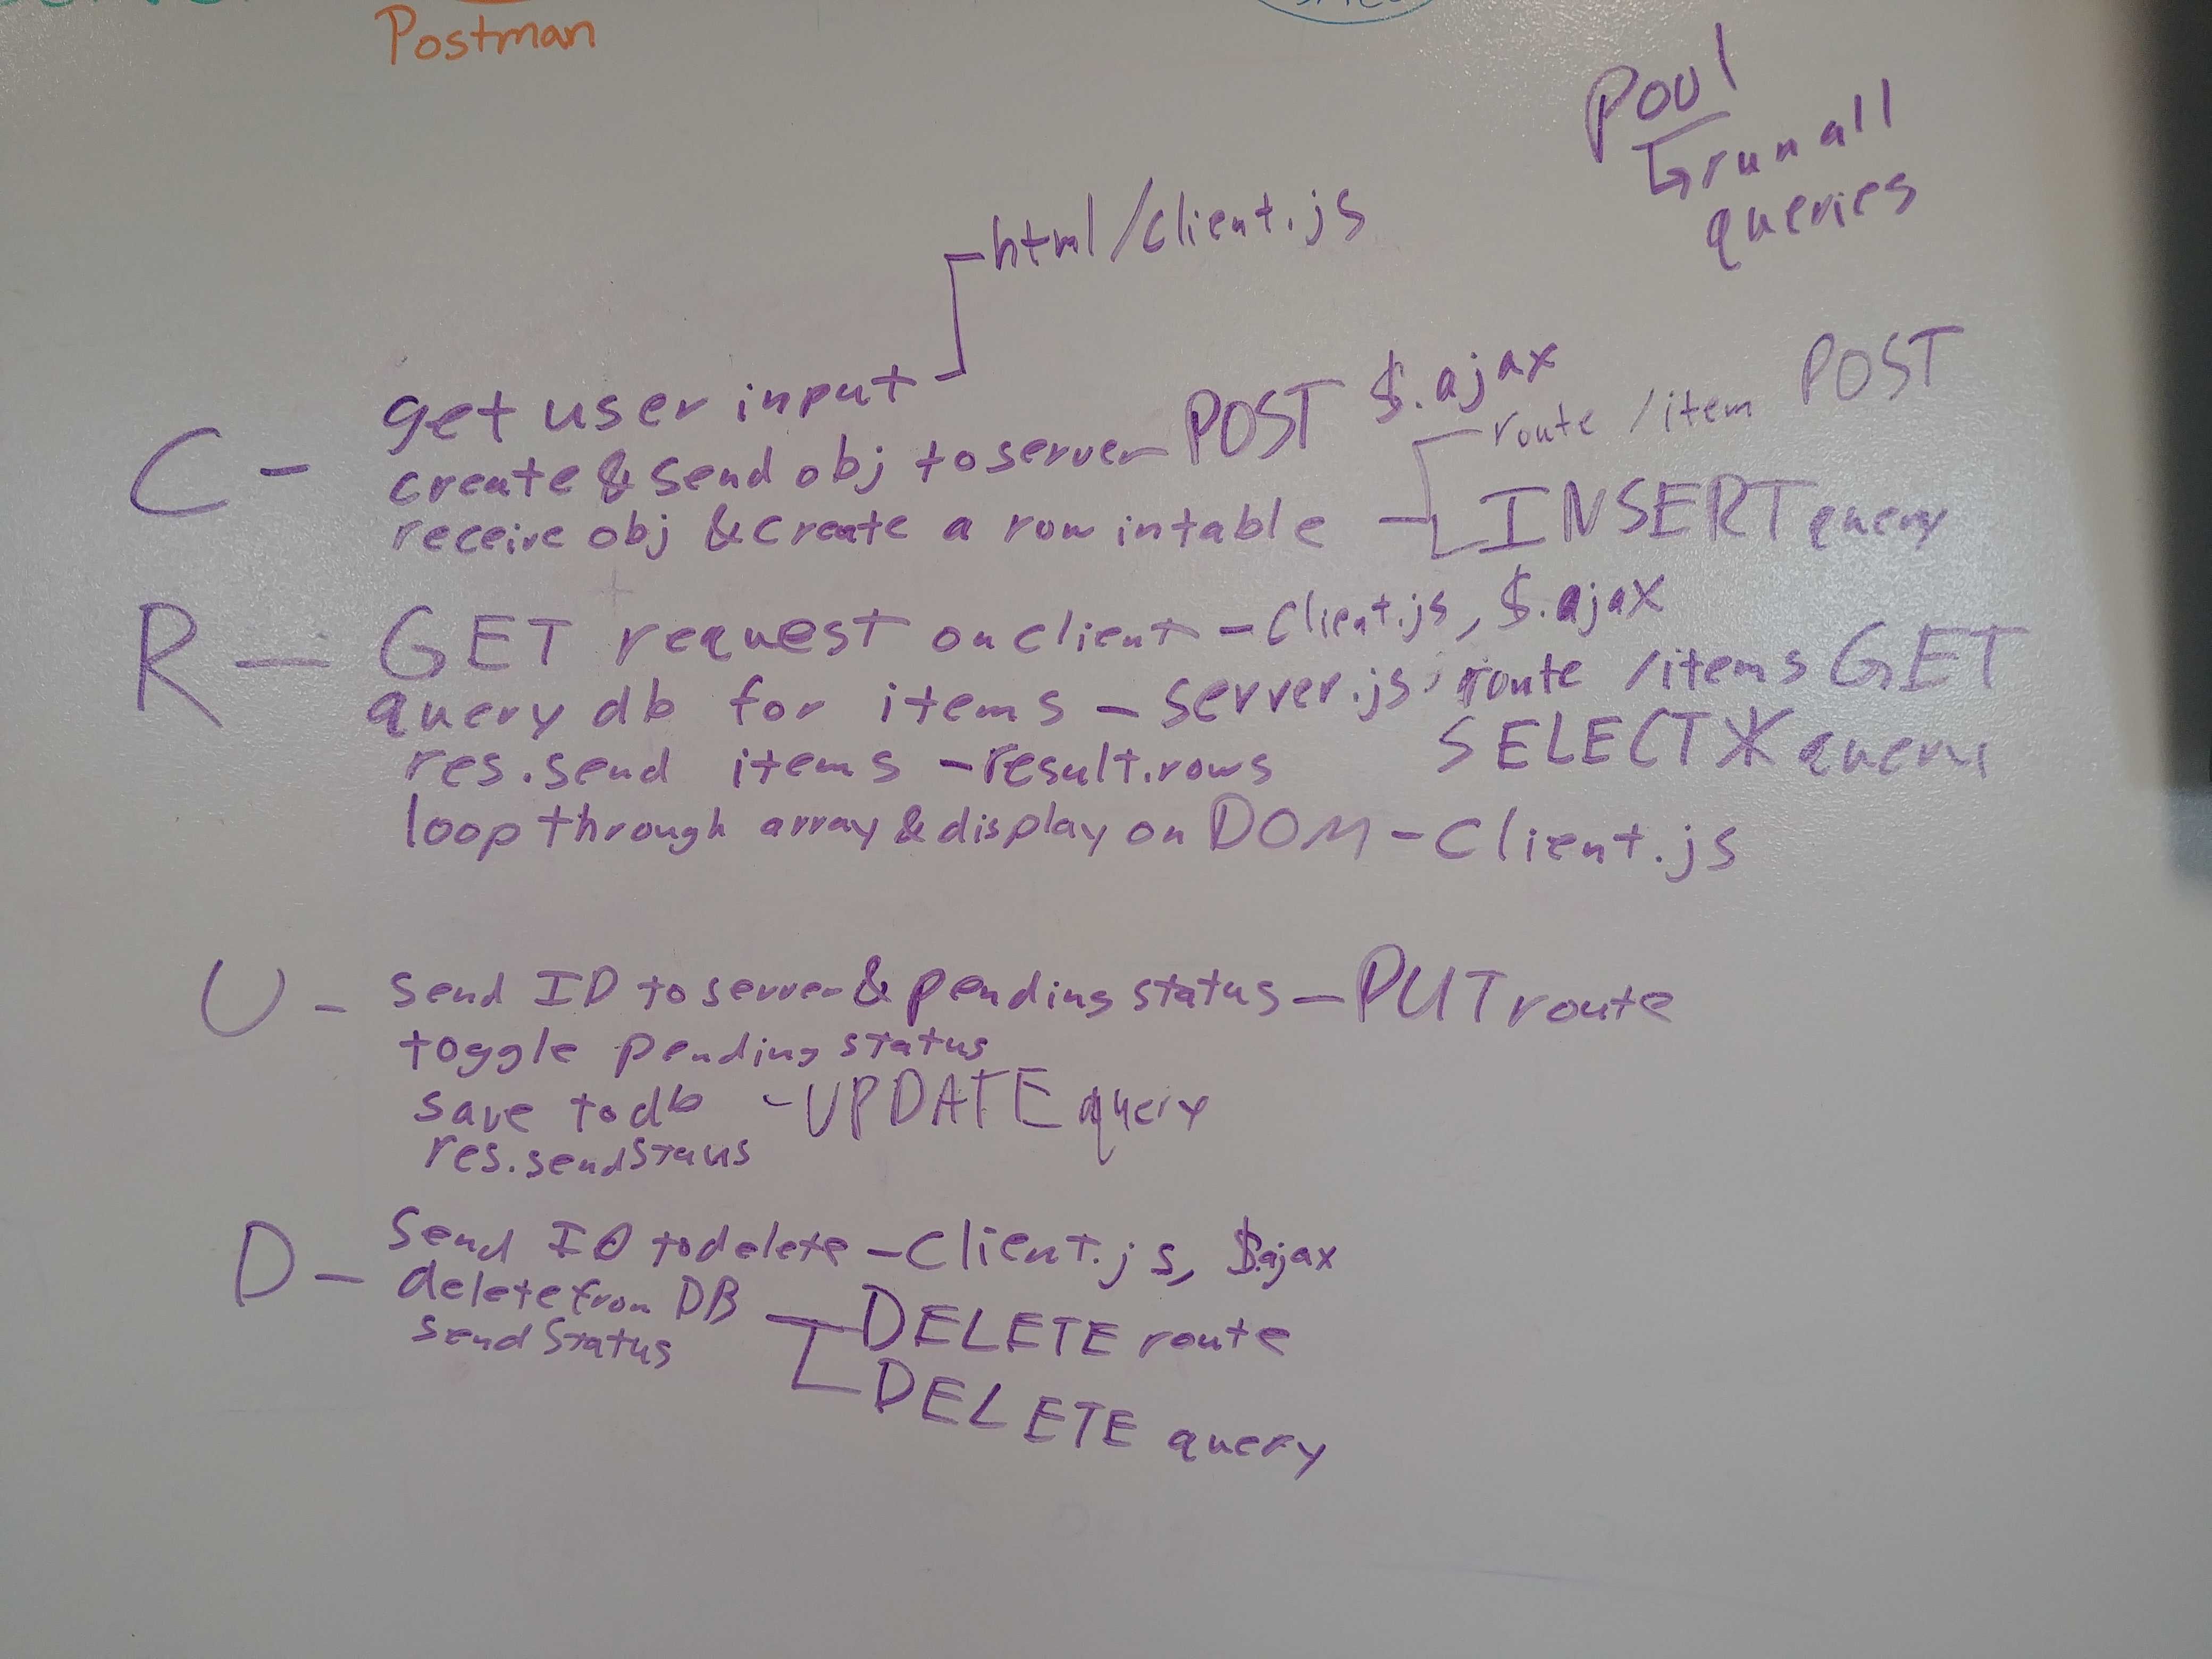 Postman
Pool
run all
queries
html/client.js
C - get user input
create & send obj to server - POST $.ajax
route /item POST
receive obj & create a row in table - INSERT query
R - GET request on client - client.js, $.ajax
query db for items - server.js route /items GET
SELECT * query
res.send items - result.rows
loop through array & display on DOM - client.js
U - send ID to server & pending status - PUT route
toggle pending status
save to db - UPDATE query
res.sendStaus
D - Send ID to delete - client.js, $.ajax
delete from DB - DELETE route
send Status
DELETE query